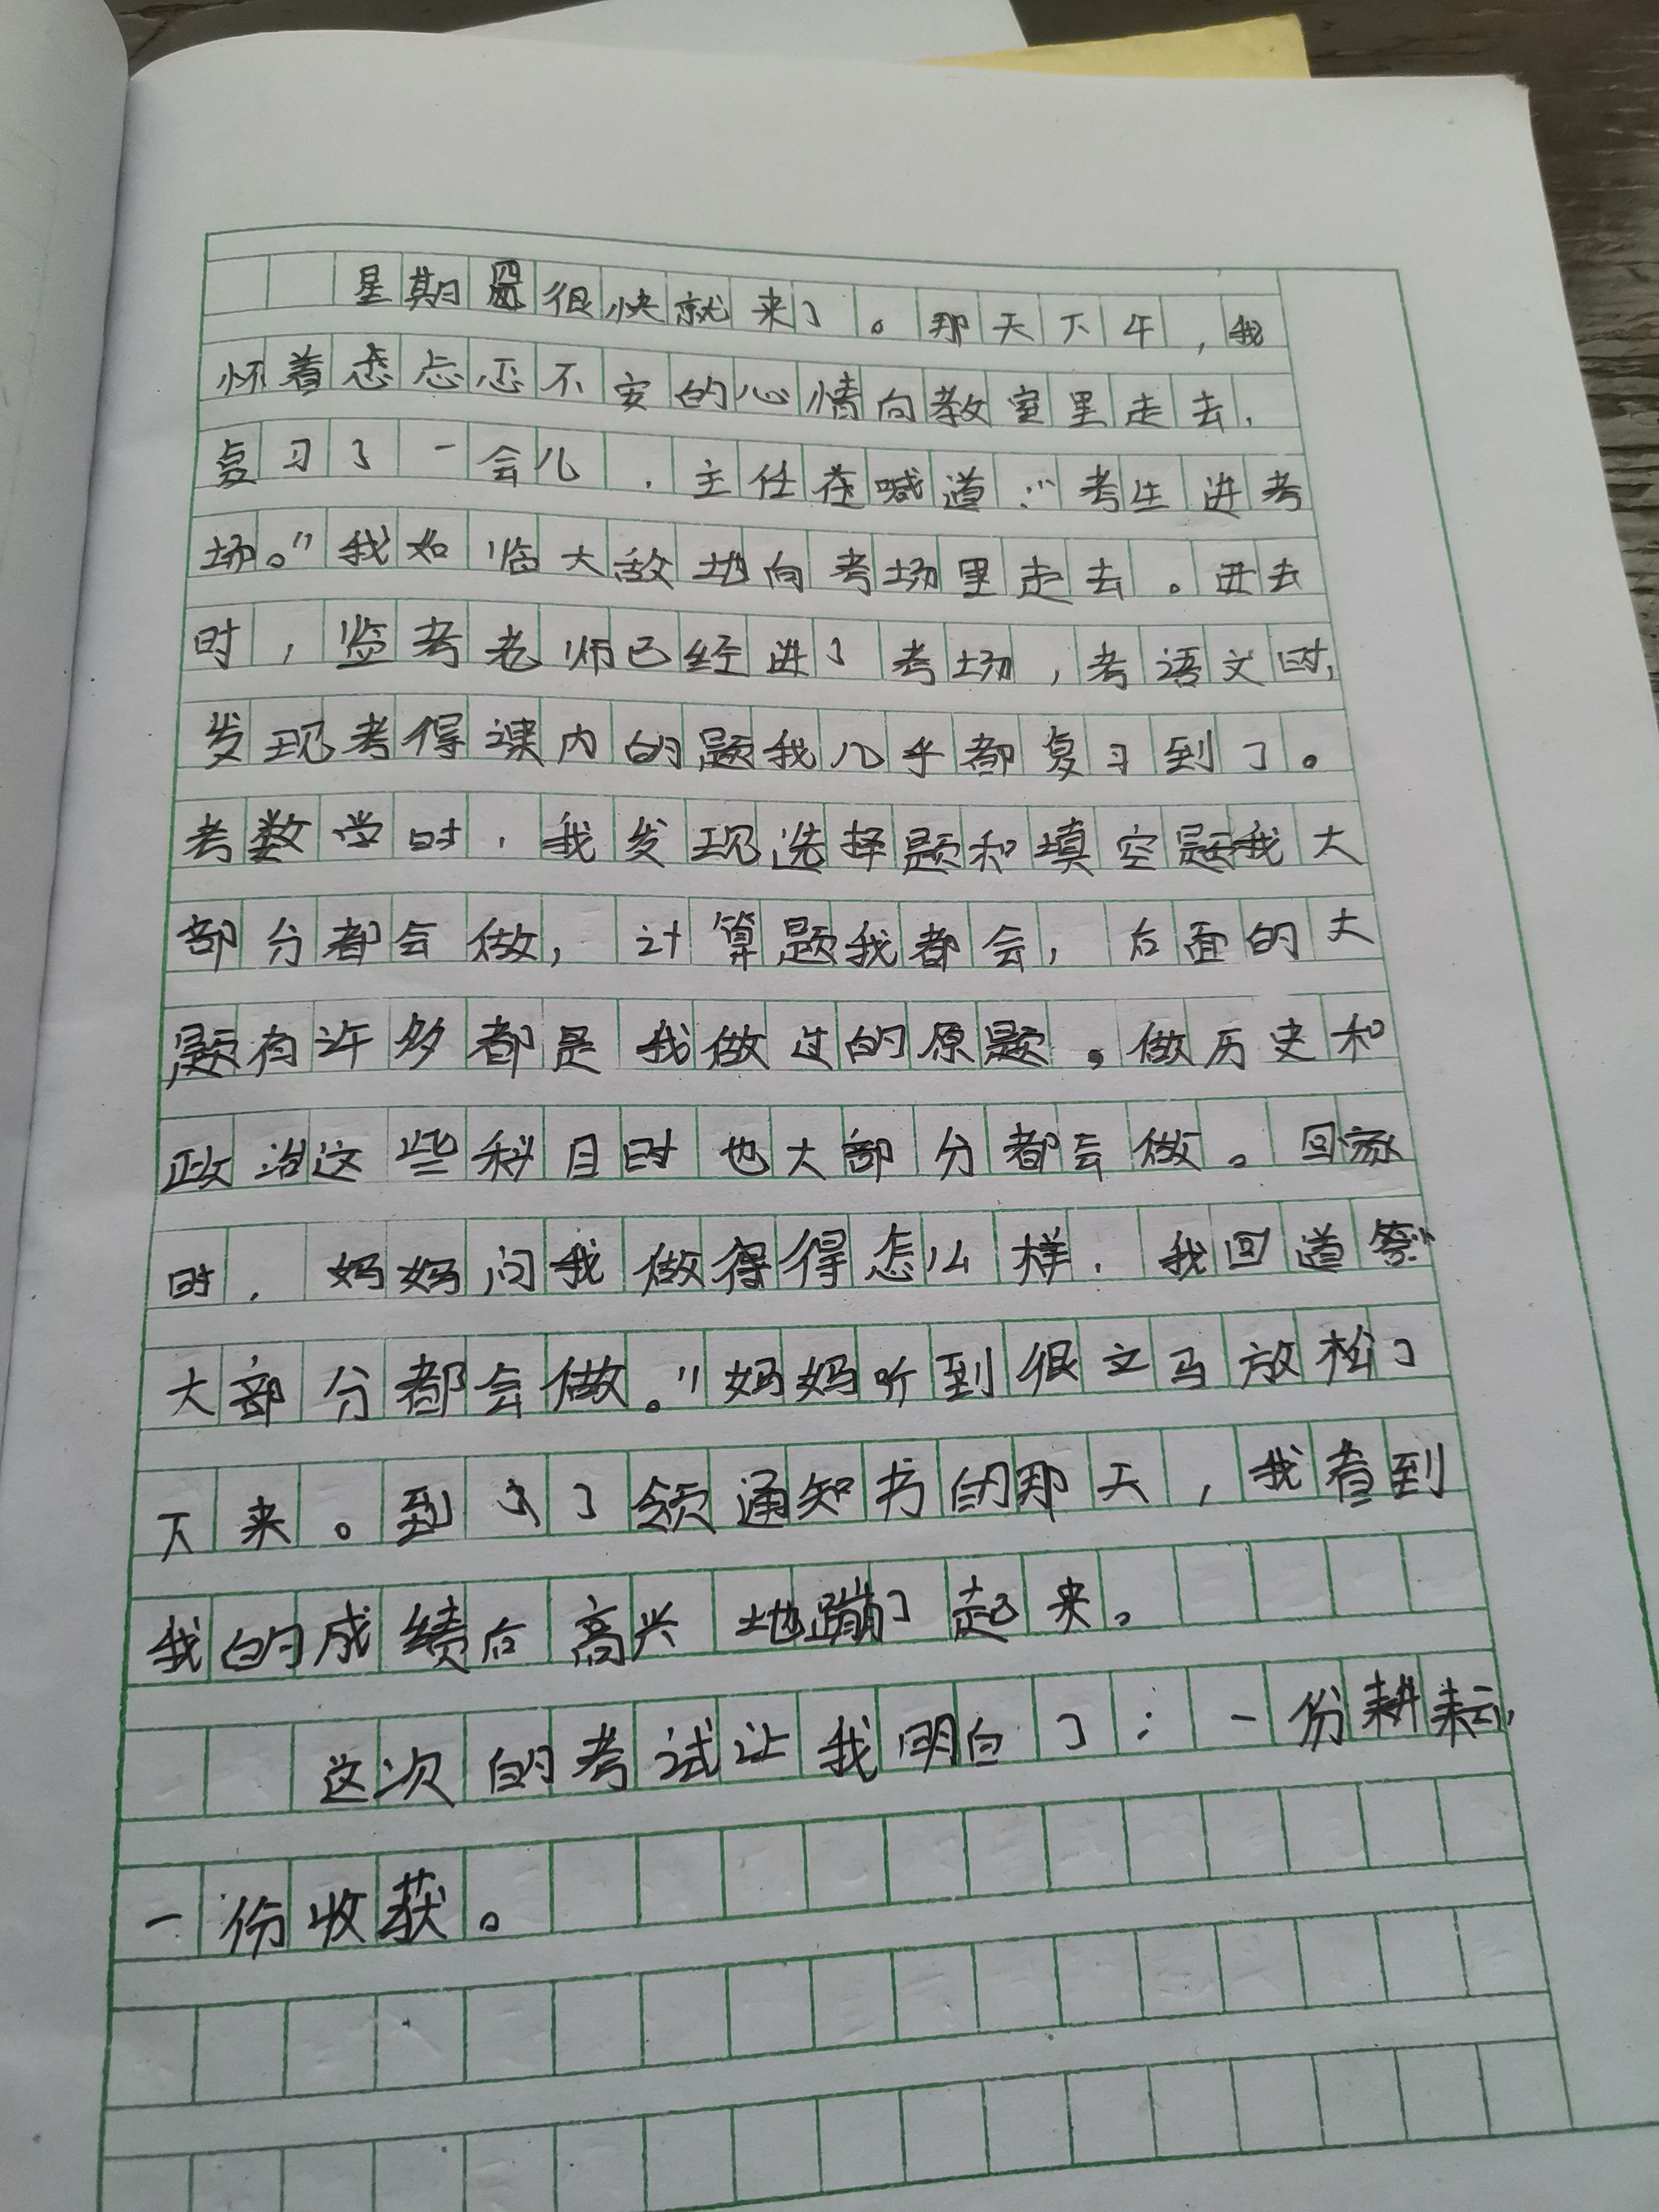 星期四很快就来了。那天下午，我
怀着忐忑不安的心情向教室里走去，
复习了一会儿，主任在喊道：“考生进考
场。”我如临大敌地向考场里走去。进去
时，监考老师已经进了考场，考语文时，
发现考得课内的题我几乎都复习到了。
考数学时，我发现选择题和填空题我大
部分都会做，计算题我都会，后面的大
题有许多都是我做过的原题，做历史和
政治这些科目时也大部分都会做。回家
时，妈妈问我做得得怎么样，我回道答“
大部分都会做。”妈妈听到很立马放松了
下来。到了领通知书的那天，我看到
我的成绩后高兴地蹦了起来。
这次的考试让我明白了：一份耕耘，
一份收获。